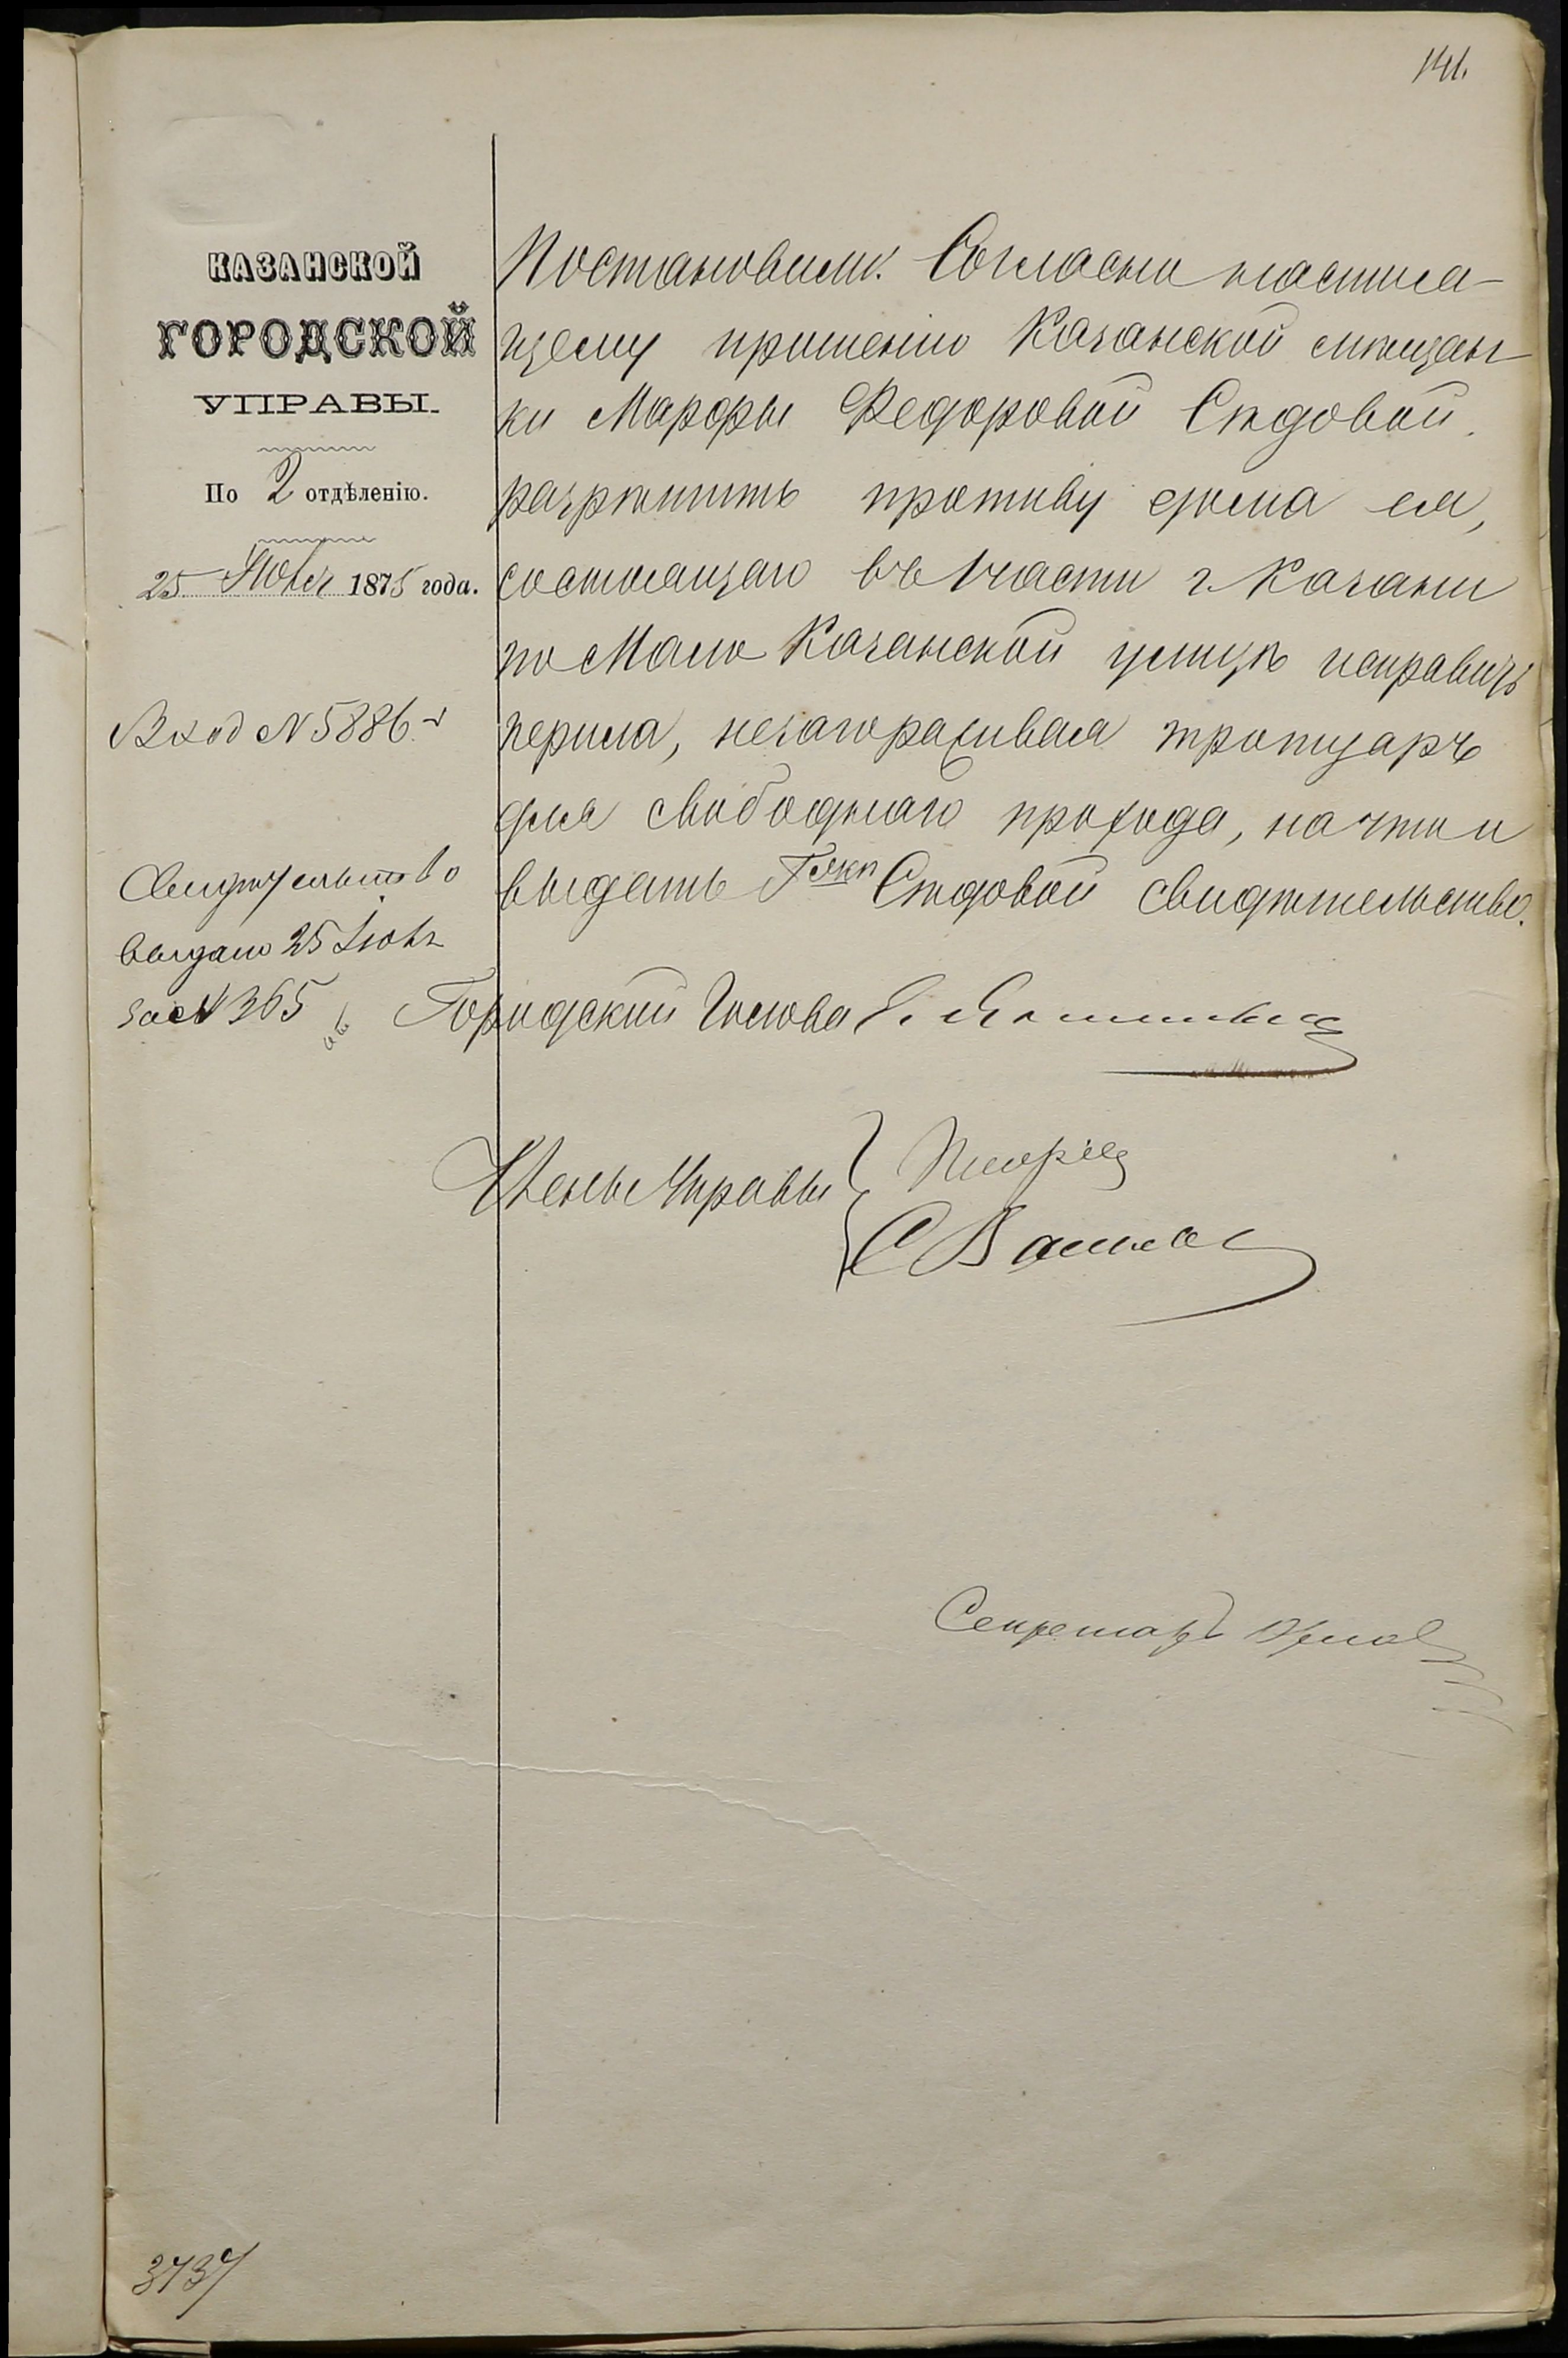 141.
КАЗАНСКОЙ
ГОРОДСКОЙ
УПРАВЫ.
По 2 отдѣленію.
25 Іюня 1875 года.
Вход №5886.
Свидѣтельство
выдано 25 Іюня
за №365
Постановили: Согласно настоя-
щему прошенію Казанской мѣщан-
ки Марфы Федоровой Сѣдовой
разрѣшить противу дома ея,
состоящаго въ 1 части г. Казани
по Мало Казанской улицѣ исправить
перила, незагораживая тротуаръ
для свободнаго прохода, на что и
выдать Г-жѣ Сѣдовой свидѣтельство.
Городской Голова Э. Янишевскій
Члены Управы
С
Секретарь
3737